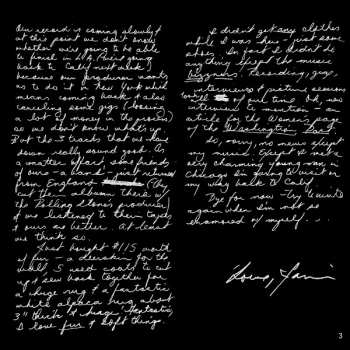 Our record is coming slowly &
at this point we don't know
whether we're going to be able
to finish in L.A. (we're going
back to Calif. next week)
because our producer wants
us to do it in New York which
means coming back & also
canceling some gigs (losing
a lot of money in the process)
so we don't know what's up.
But the 3 tracks that we have
down really sound good. As
a matter of fact, some friends
of ours - a band - just returned
from England (they
cut their album there w/
the Rolling Stones producer)
& we listened to their tapes
& ours are better. At least
we think so.
Just bought $115 worth
of fur - a deerskin for the
wall, 5 used coats to cut
up & sew back together for
a huge rug & a fantastic
white alpaca rug, about
3" thick & huge! Fantastic,
I love fur & soft things.
I didn't get any clothes
while I was here - just some
shoes. In fact I didn't do
anything except the music
business: recording, gigs,
interviews & picture sessions
all of our time. Oh, was
interviewed to mention in an
article for the Women's page
of the Washington Post.
So, sorry, no news except
my music. Except I met a
very charming young man in
Chicago I'm going to visit on
my way back to Calif.
Bye for now - try & write
again when I'm not so
enamored of myself....
Love, Janis
3